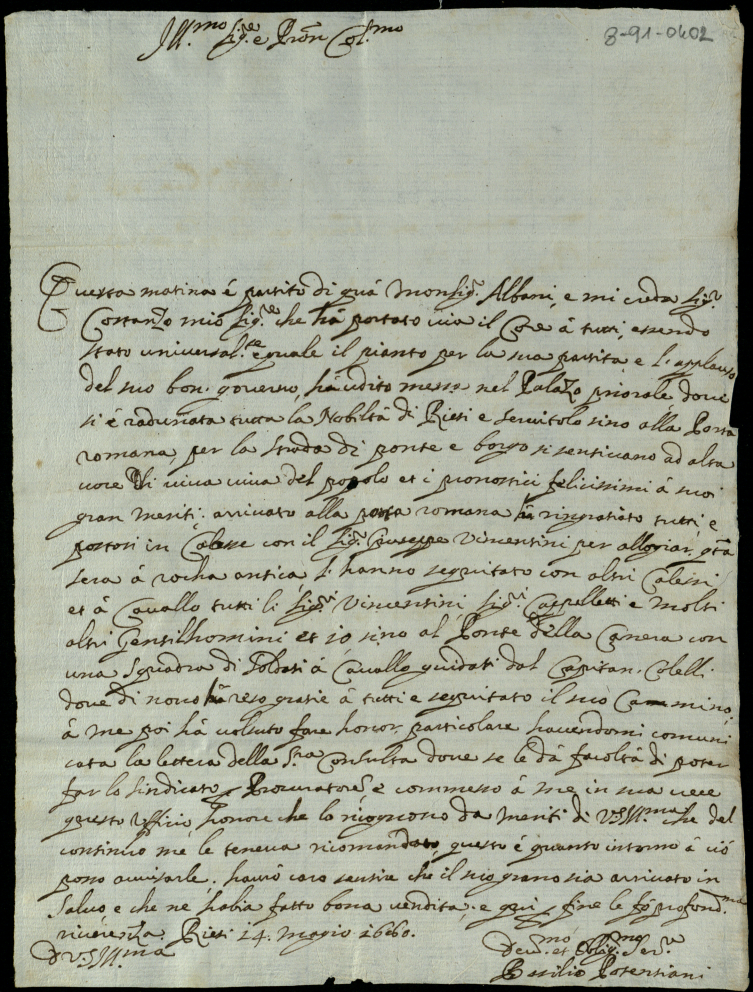 8-91-0402
Ill.mo Sig.re e Pron Col.mo
Questa matina é partito di quá Monsig.r Albani, e mi creda Sig.r
Costanzo mio Sig.re che há portato via il Core á tutti, essendo
stato universal.te eguale il pianto per la sua partita e l'applauso
del suo bon governo, há udito messa nel Palazo priorale dove
si é radunata tutta la Nobiltá di Rieti e servitolo sino alla Porta
romana per la strada di ponte e borgo si sentivano ad alta
voce li viva viva del popolo et i pronostici felicissimi á suoi
gran meriti. arrivato alla porta romana há ringratiato tutti, e
postosi in Calesse con il Sig.r Giuseppe Vincentini per allogiar q.ta
sera á rocha antica l'hanno seguitato con altri Calessi
et á Cavallo tutti li Sig.ri Vincentini, Sig.ri Cappelletti e molti
altri Gentilhomini et io sino al Ponte della Canera con
una Squadra di Soldati á Cavallo guidati dal Capitan Colelli
dove di novo há reso gratie á tutti e seguitato il suo Cammino,
á me poi há voluto fare honor particolare havendomi comuni
cata la lettera della S.ra Consulta dove se le dá facoltá di poter
far lo sindicato Procuratores e commesso á me in sua vece
questo Offitio honore che lo ricognosco da meriti di V.S.Ill.ma che del
continuo me le teneva ricomandato, questo é quanto intorno á ció
posso avvisarle. havró caro sentire che il suo grano sia arrivato in
Salvo e che ne habia fatto bona vendita, e qui fine le fo profond.ma
riverenza. Rieti 14. Magio 1660.
D V.S.Ill.ma
Dev.mo et Oblig.mo Ser.re
Basilio Potentiani